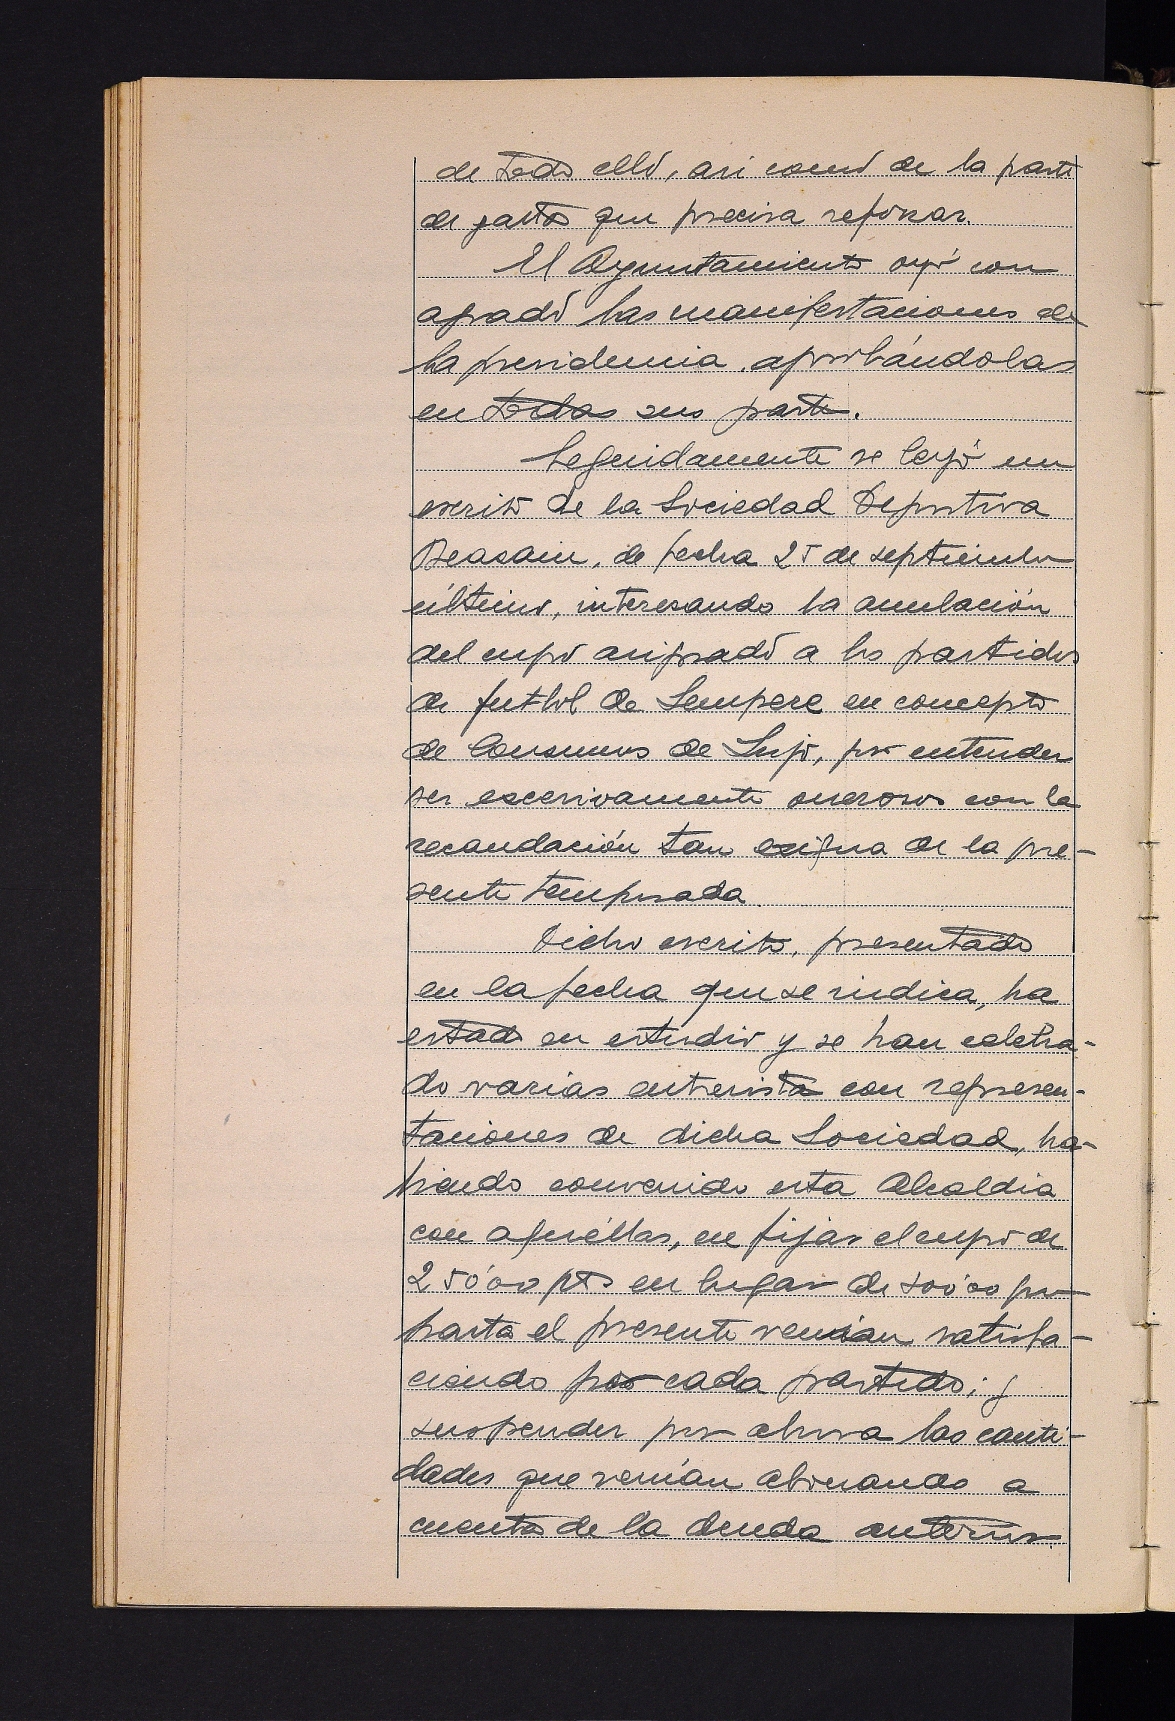 de todo ello, asi como de la parte
de gastos que precisa reforzar.
El Ayuntamiento oyó con
agrado las manifestaciones de
la presidencia, aprobándolas
en todas sus parte.
Seguidamente se leyó un
escrito de la Sociedad Deportiva
Beasain, de fecha 25 de septiembre
último, interesando la anulación
del cupo asignado a los partidos
de futbol de Sempere en concepto
de Consumos de Lujo, por entender
ser excesivamente onerosos con la
recaudación tan exigua de la pre-
sente temporada
Dicho escrito, presentado
en la fecha que se indica, ha
estado en estudio y se han celebra-
do varias entrevista con represen-
taciones de dicha Sociedad, ha-
biendo convenido esta Alcaldia
con aquéllas, en fijar el cupo de
250'00 pts en lugar de 400'00 que
hasta el presente venian satisfa-
ciendo por cada partido; y
suspender por ahora las canti-
dades que venían abonando a
cuenta de la deuda anterior.